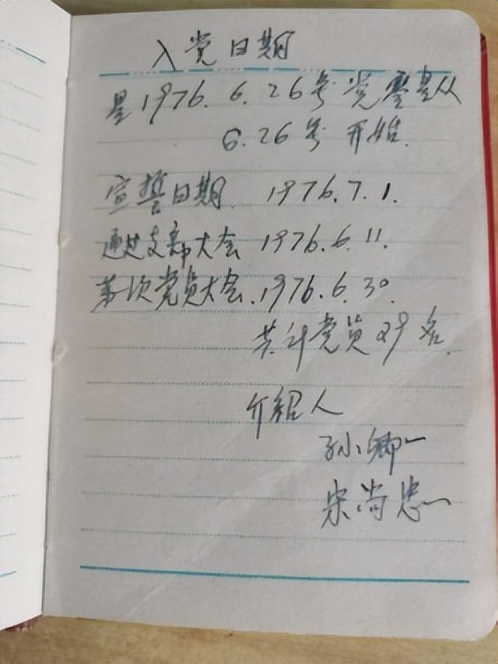 入党日期
是1976.6.26号党龄是从
6.26号开始.
宣誓日期. 1976.7.1.
通过支部大会 1976.6.11.
首次党员大会.1976.6.30.
共计党员29名.
介绍人
孙卿一
宋尚忠